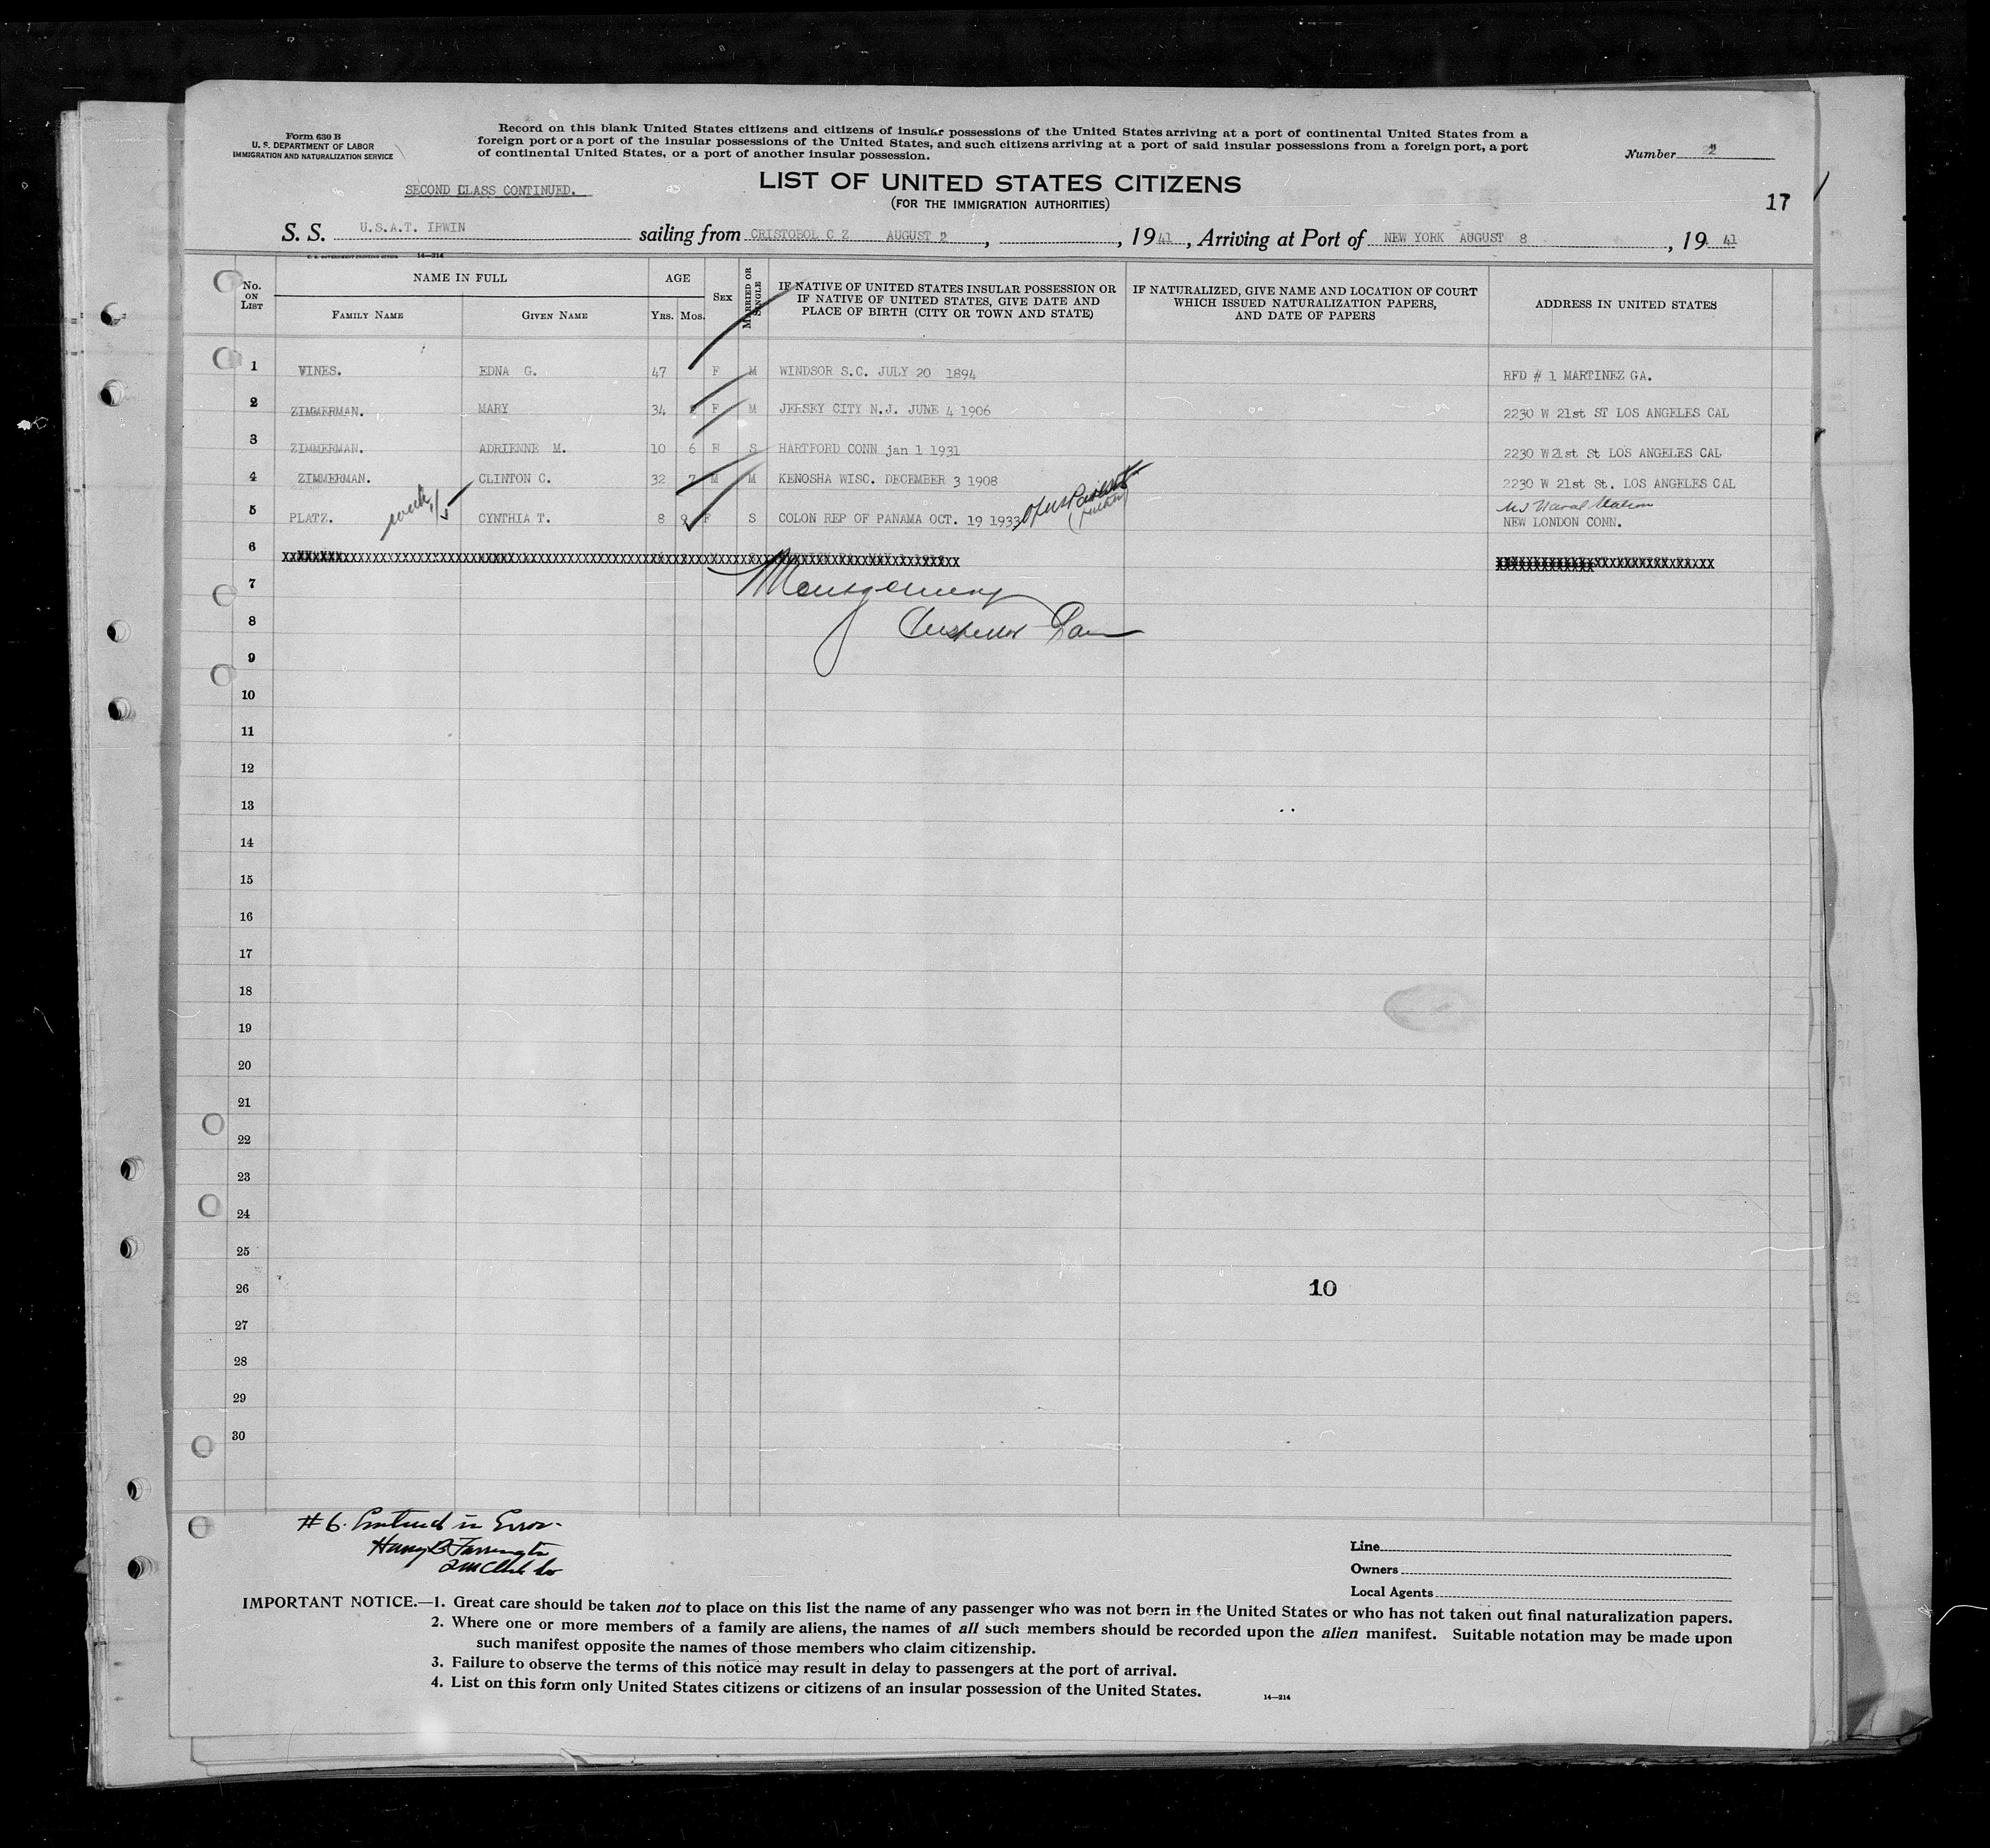 Form 630 B
U. S. DEPARTMENT OF LABOR
IMMIGRATION AND NATURALIZATION SERVICE
Record on this blank United States citizens and citizens of insular possessions of the United States arriving at a port of continental United States from a
foreign port or a port of the insular possessions of the United States, and such citizens arriving at a port of said insular possessions from a foreign port, a port
of continental United States, or a port of another insular possession.
Number 2
SECOND CLASS CONTINUED.
LIST OF UNITED STATES CITIZENS
(FOR THE IMMIGRATION AUTHORITIES)
17
S. S. U.S.A.T. IRWIN sailing from CRISTOBOL C Z AUGUST 2, , 19 41, Arriving at Port of NEW YORK AUGUST 8, 19 41
U. S. GOVERNMENT PRINTING OFFICE 14—214
No. ON LIST
NAME IN FULL
FAMILY NAME
GIVEN NAME
AGE
YRS. MOS.
SEX
MARRIED OR SINGLE
IF NATIVE OF UNITED STATES INSULAR POSSESSION OR
IF NATIVE OF UNITED STATES, GIVE DATE AND
PLACE OF BIRTH (CITY OR TOWN AND STATE)
IF NATURALIZED, GIVE NAME AND LOCATION OF COURT
WHICH ISSUED NATURALIZATION PAPERS,
AND DATE OF PAPERS
ADDRESS IN UNITED STATES
1 VINES. EDNA G. 47 F M WINDSOR S.C. JULY 20 1894 RFD # 1 MARTINEZ GA.
2 ZIMMERMAN. MARY 34 F M JERSEY CITY N.J. JUNE 4 1906 2230 W 21st ST LOS ANGELES CAL
3 ZIMMERMAN. ADRIENNE M. 10 6 F S HARTFORD CONN jan 1 1931 2230 W 21st St LOS ANGELES CAL
4 ZIMMERMAN. CLINTON C. 32 7 M M KENOSHA WISC. DECEMBER 3 1908 2230 W 21st St. LOS ANGELES CAL
US Naval Station
5 PLATZ. CYNTHIA T. 8 9 F S COLON REP OF PANAMA OCT. 19 1933 NEW LONDON CONN.
6
7 Montgomery
8
9
10
11
12
13
14
15
16
17
18
19
20
21
22
23
24
25
26 10
27
28
29
30
#6. Entered in Error.
Line
Owners
Local Agents
IMPORTANT NOTICE.—1. Great care should be taken not to place on this list the name of any passenger who was not born in the United States or who has not taken out final naturalization papers.
2. Where one or more members of a family are aliens, the names of all such members should be recorded upon the alien manifest. Suitable notation may be made upon
such manifest opposite the names of those members who claim citizenship.
3. Failure to observe the terms of this notice may result in delay to passengers at the port of arrival.
4. List on this form only United States citizens or citizens of an insular possession of the United States.
14—214